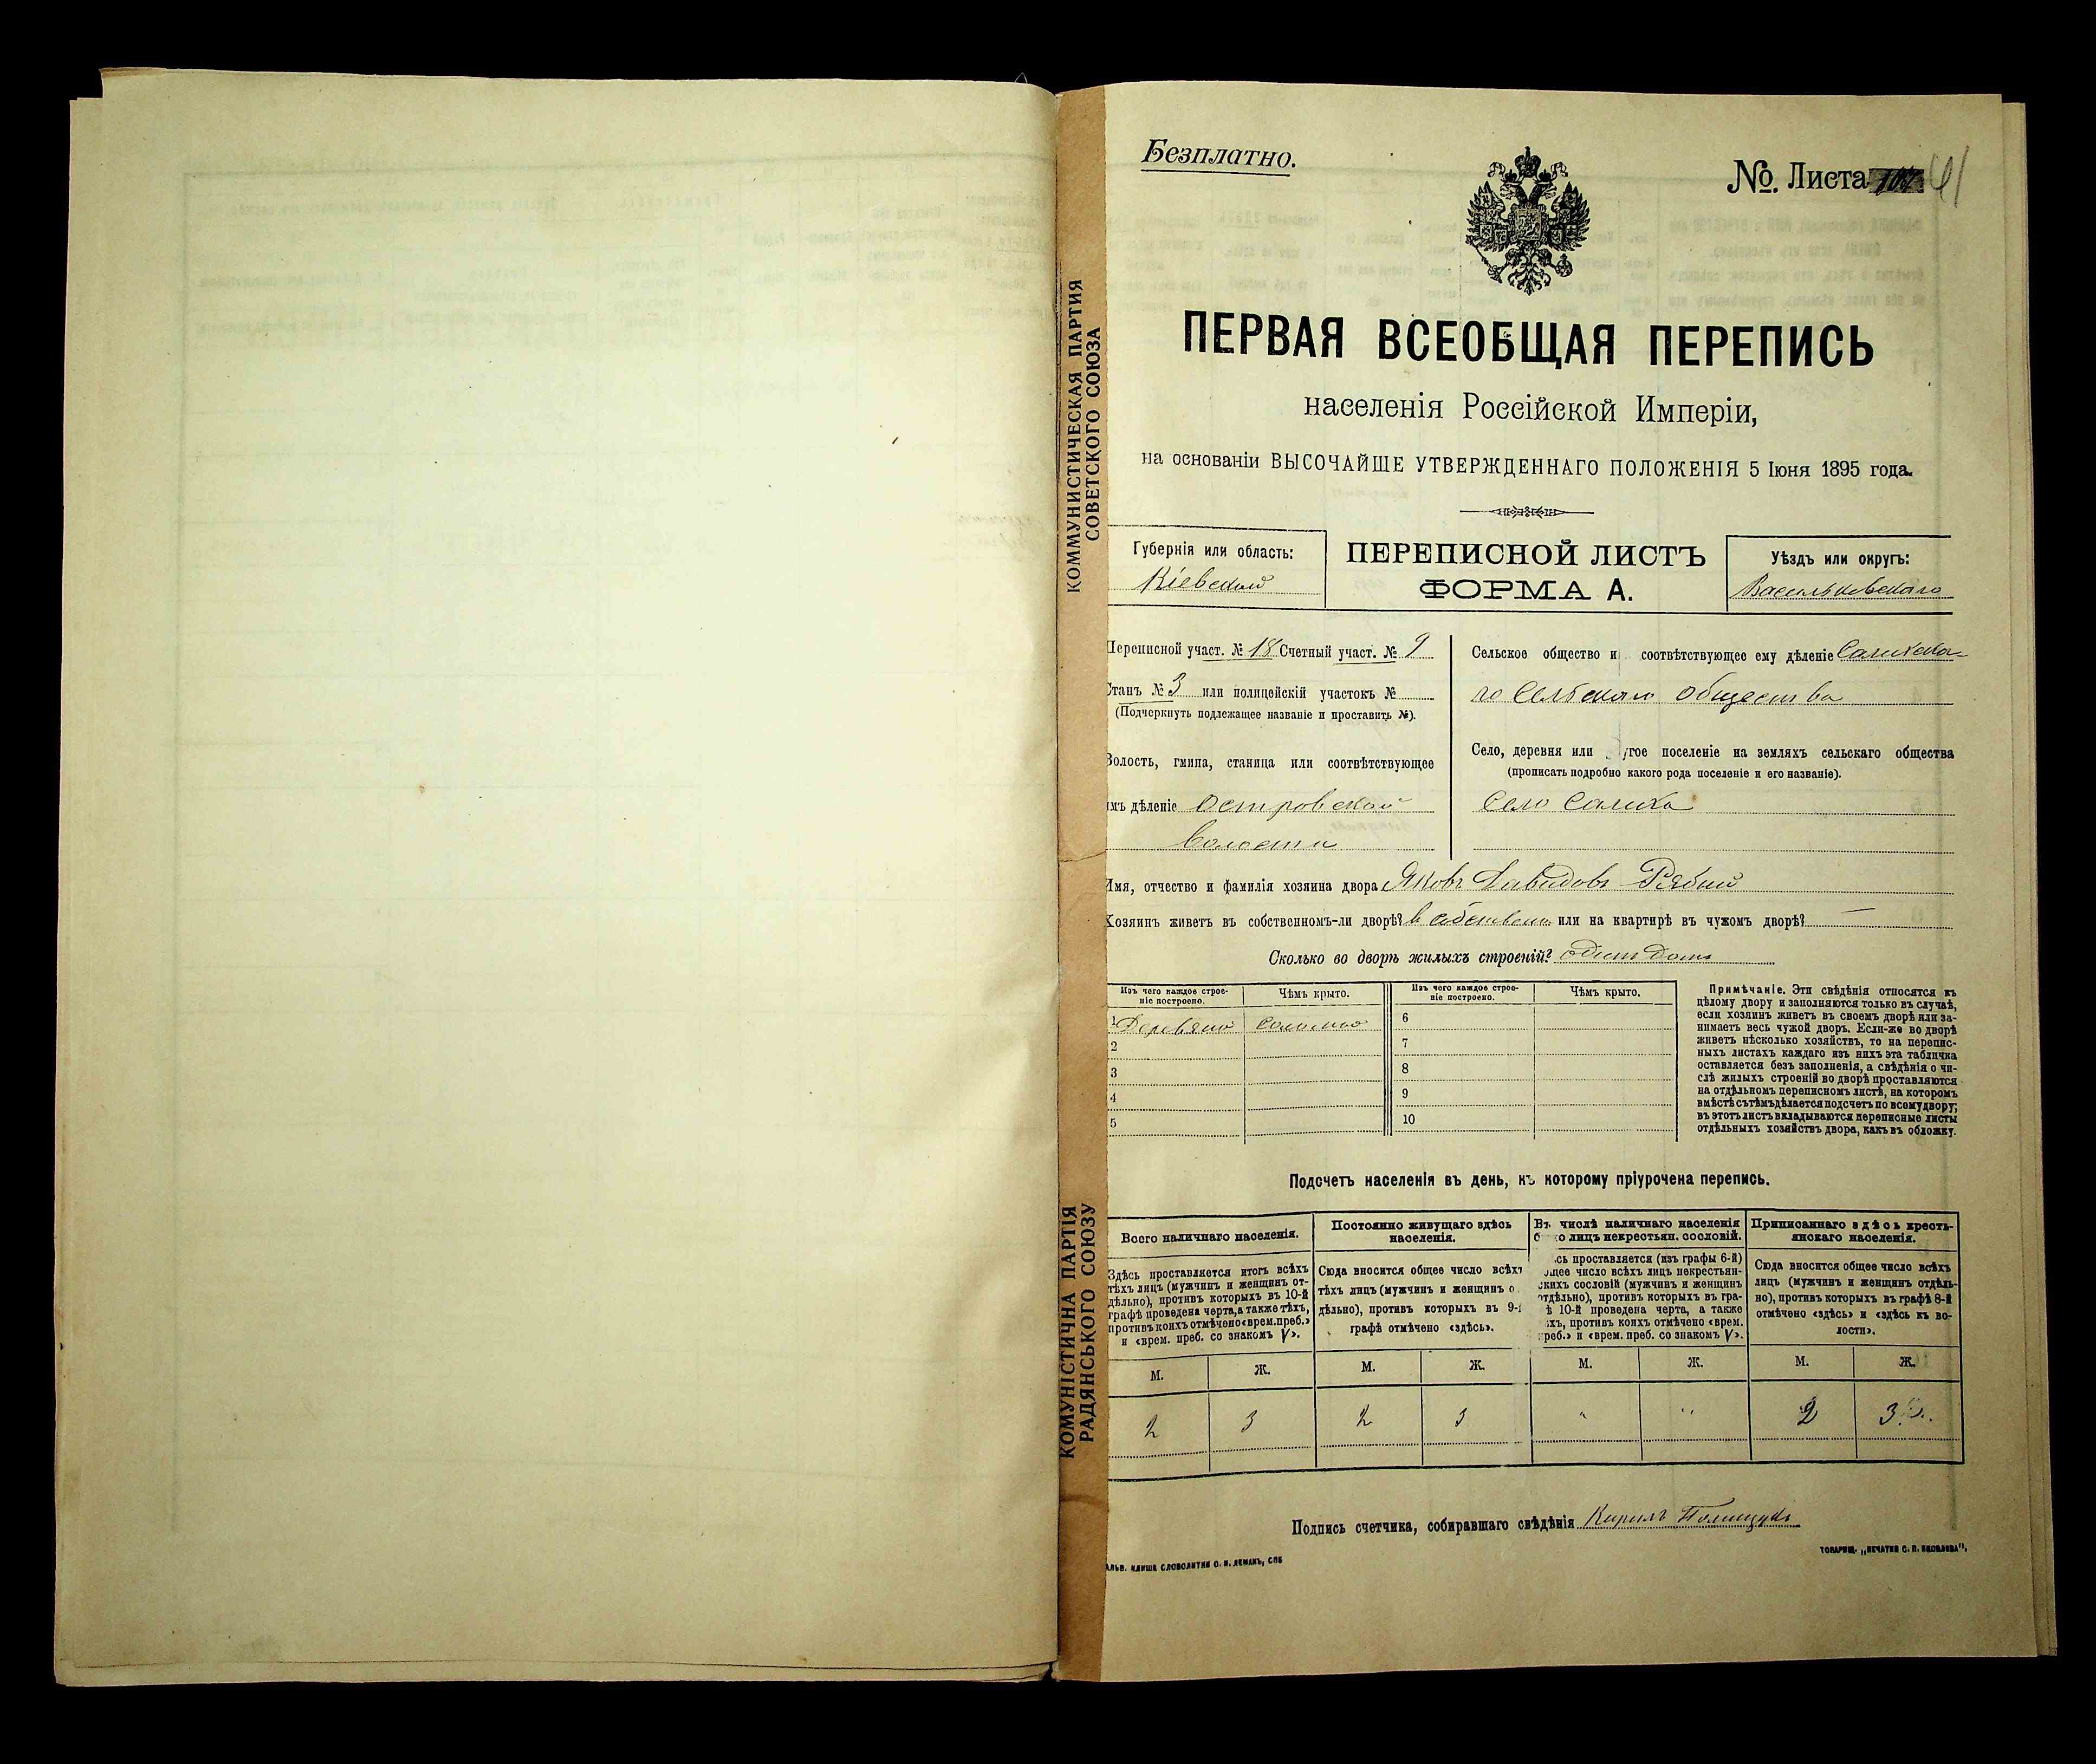 КОММУНИСТИЧЕСКАЯ ПАРТИЯ
СОВЕТСКОГО СОЮЗА
КОМУНІСТИЧНА ПАРТІЯ
РАДЯНСЬКОГО СОЮЗУ
Безплатно.
№. Листа 41
ПЕРВАЯ ВСЕОБЩАЯ ПЕРЕПИСЬ
населенія Россійской Имперіи,
на основаніи ВЫСОЧАЙШЕ УТВЕРЖДЕННАГО ПОЛОЖЕНІЯ 5 Іюня 1895 года.
Губернія или область:
Кіевской
ПЕРЕПИСНОЙ ЛИСТЪ
ФОРМА А.
Уѣздъ или округъ:
Васильковскаго
Переписной участ. № 18 Счетный участ. № 9
Станъ № 3 или полицейскій участокъ №
(Подчеркнуть подлежащее названіе и проставить №).
Волость, гмина, станица или соотвѣтствующее
имъ дѣленіе Островской
волости
Сельское общество и соотвѣтствующее ему дѣленіе
го Сельскаго общества
Село, деревня или гое поселеніе на земляхъ сельскаго общества
(прописать подробно какого рода поселеніе и его названіе).
Село
Имя, отчество и фамилія хозяина двора Яковъ Давидовъ Рябый
Хозяинъ живетъ въ собственномъ-ли дворѣ? в собствен или на квартирѣ въ чужомъ дворѣ? —
Сколько во дворѣ жилыхъ строеній? один домъ
Изъ чего каждое строе-
ніе построено.
Чѣмъ крыто.
Изъ чего каждое строе-
ніе построено.
Чѣмъ крыто.
1 Деревяно Соломою
2
3
4
5
6
7
8
9
10
Примѣчаніе. Эти свѣдѣнія относятся къ
цѣлому двору и заполняются только въ случаѣ,
если хозяинъ живетъ въ своемъ дворѣ или за-
нимаетъ весь чужой дворъ. Если-же во дворѣ
живетъ нѣсколько хозяйствъ, то на перепис-
ныхъ листахъ каждаго изъ нихъ эта табличка
оставляется безъ заполненія, а свѣдѣнія о чи-
слѣ жилыхъ строеній во дворѣ проставляются
на отдѣльномъ переписномъ листѣ, на которомъ
вмѣстѣ съ тѣмъ дѣлается подсчетъ по всему двору;
въ этотъ листъ вкладываются переписные листы
отдѣльныхъ хозяйствъ двора, какъ въ обложку.
Подсчетъ населенія въ день, къ которому пріурочена перепись.
Всего наличнаго населенія.
Здѣсь проставляется итогъ всѣхъ
тѣхъ лицъ (мужчинъ и женщинъ от-
дѣльно), противъ которыхъ въ 10-й
графѣ проведена черта, а также тѣхъ,
противъ коихъ отмѣчено «врем. преб.»
и «врем. преб. со знакомъ V».
Постоянно живущаго здѣсь
населенія.
Сюда вносится общее число всѣхъ
тѣхъ лицъ (мужчинъ и женщинъ о
дѣльно), противъ которыхъ въ 9-й
графѣ отмѣчено «здѣсь».
Въ числѣ наличнаго населенія
о лицъ некрестьян. сословій.
сь проставляется (изъ графы 6-й)
бщее число всѣхъ лицъ некрестьян-
скихъ сословій (мужчинъ и женщинъ
отдѣльно), противъ которыхъ въ гра-
ѣ 10-й проведена черта, а также
хъ, противъ коихъ отмѣчено «врем.
преб.» и «врем. преб. со знакомъ V».
Приписаннаго здѣсь кресть-
янскаго населенія.
Сюда вносится общее число всѣхъ
лицъ (мужчинъ и женщинъ отдѣль-
но), противъ которыхъ въ графѣ 8-й
отмѣчено «здѣсь» и «здѣсь къ во-
лости».
М. Ж. М. Ж. М. Ж. М. Ж.
2 3 2 3 " " 2 3
Подпись счетчика, собиравшаго свѣдѣнія Кирилъ Полищукъ
АЛЬВ. КЛИША СЛОВОЛИТНИ О. И. ЛЕМАНЪ, СПБ
ТОВАРИЩ. „ПЕЧАТНЯ С. П. ЯКОВЛЕВА",